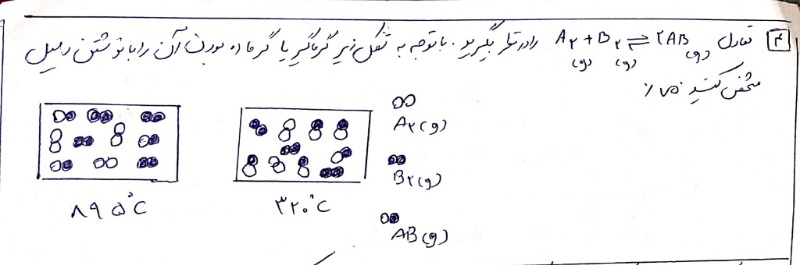 ۴ تعادل A۲(g) + B۲(g) ⇌ ۲AB(g) را در نظر بگیرید. با توجه به شکل زیر گرماگیر یا گرماده بودن آن را با نوشتن دلیل
مشخص کنید. ۷۵٪
A۲(g)
B۲(g)
AB(g)
۸۹۵°C
۳۲۰°C